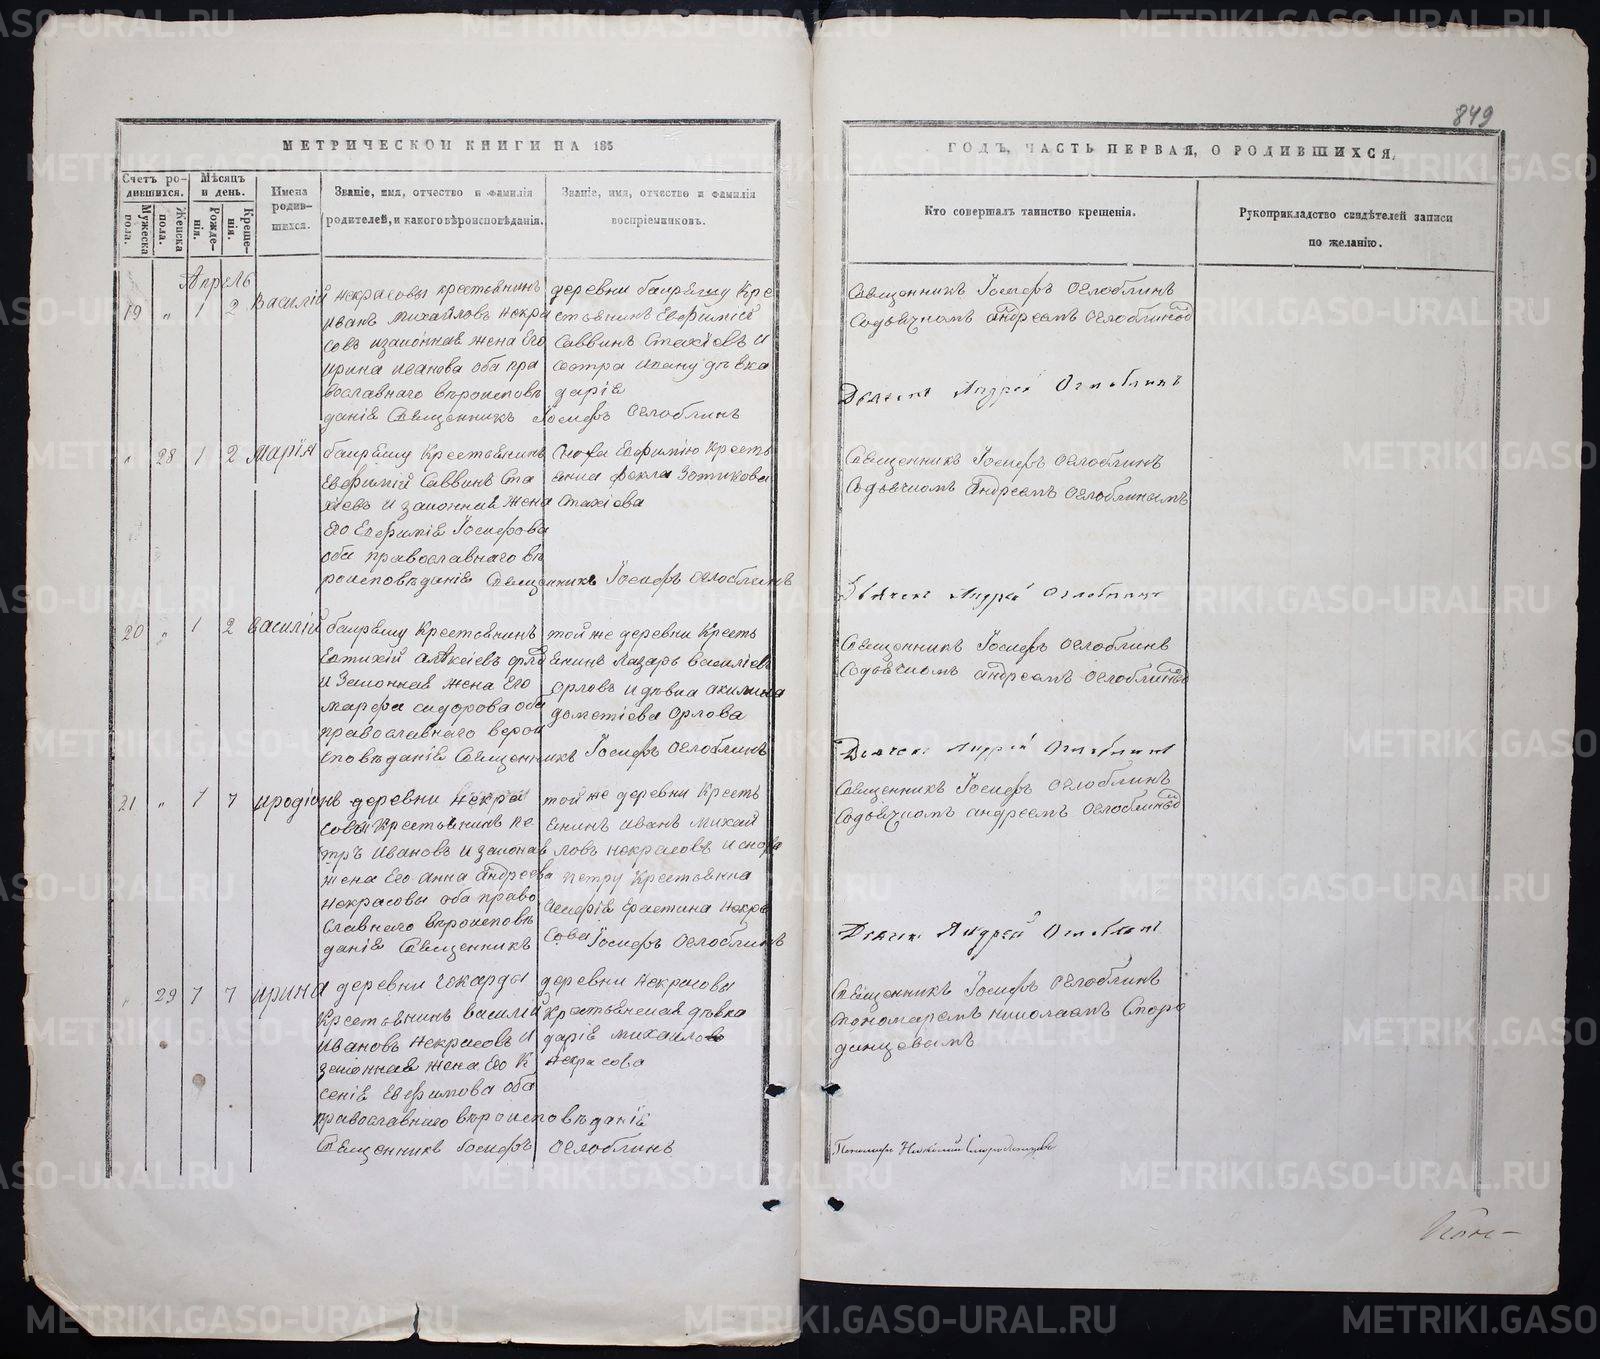 849
МЕТРИЧЕСКОЙ КНИГИ НА 185
ГОДЪ, ЧАСТЬ ПЕРВАЯ, О РОДИВШИХСЯ.
Счетъ ро-
дившихся.
Мужеска
пола.
Женска
пола.
Мѣсяцъ
и день.
Рожде-
нія.
Креще-
нія.
Имена
родив-
шихся.
Званіе, имя, отчество и фамилія
родителей, и какого вѣроисповѣданія.
Званіе, имя, отчество и фамилія
воспріемниковъ.
Кто совершалъ таинство крещенія.
Рукоприкладство свидѣтелей записи
по желанію.
Апрель
19 " 1 2 Василій
некрасовы крестьянинъ
иванъ михайловъ некра
совъ изаконная жена Его
ирина иванова оба пра
вославнаго вѣроисповѣ
данія Священникъ Іосифъ Оглоблинъ
деревни баирѣшу Кре
стьянинъ Евфимій
Саввинъ Стахіевъ и
сестра ивану дѣвка
дарія
Священникъ Іосифъ Оглоблинъ
Содьячкомъ андреемъ Оглоблинымъ
Дьячекъ Андрей Оглоблинъ
" 28 1 2 Марія
баирѣшу Крестьянинъ
Евфимій Саввинъ Ста
хіевъ и законная жена
Его Евфимія Іосифова
оба православнаго вѣ
роисповѣданія Священникъ Іосифъ Оглоблинъ
Сноха Евфимію Кресть
янка фекла Зотикова
Стахіева
Священникъ Іосифъ Оглоблинъ
Содьячкомъ андреемъ Оглоблинымъ
Дьячекъ Андрей Оглоблинъ
20 " 1 2 Василій
баирѣшу Крестьянинъ
Евтихій алѣксіевъ орло
и Законная жена Его
марфа сидорова оба
православнаго верои
споведанія Священникъ Іосифъ Оглоблинъ
той же деревни Кресть
янинъ лазарь василіевъ
Орловъ и дѣвка акилина
дометіева Орлова
Священникъ Іосифъ Оглоблинъ
Содьячкомъ андреемъ Оглоблинымъ
Дьячекъ Андрей Оглоблинъ
21 " 1 7 иродіонъ
деревни некра
совы Крестьянинъ пе
тръ ивановъ и законая
жена Его анна андреева
некрасовы оба право
славнаго вѣроисповѣ
данія Священникъ Іосифъ Оглоблинъ
той же деревни Кресть
янинъ иванъ михай
ловъ некрасовъ и сноха
петру Крестьянка
Гликерія Ераствина некра
сова
Священникъ Іосифъ Оглоблинъ
Содьячкомъ андреемъ Оглоблинымъ
Дьячекъ Андрей Оглоблинъ
" 29 7 7 ирина
деревни чекарды
Крестьянинъ василій
ивановъ некрасовъ и
законная жена Его К
сенія Евфимова оба
православнаго вѣроисповѣданія
Священникъ Іосифъ Оглоблинъ
деревни некрасовы
крестьянская дѣвка
дарія михайлова
некрасова
Священникъ Іосифъ Оглоблинъ
Спономаремъ николаемъ Сморо
динцевымъ
Пономарь Николай Смородинцевъ
METRIKI.GASO-URAL.RU